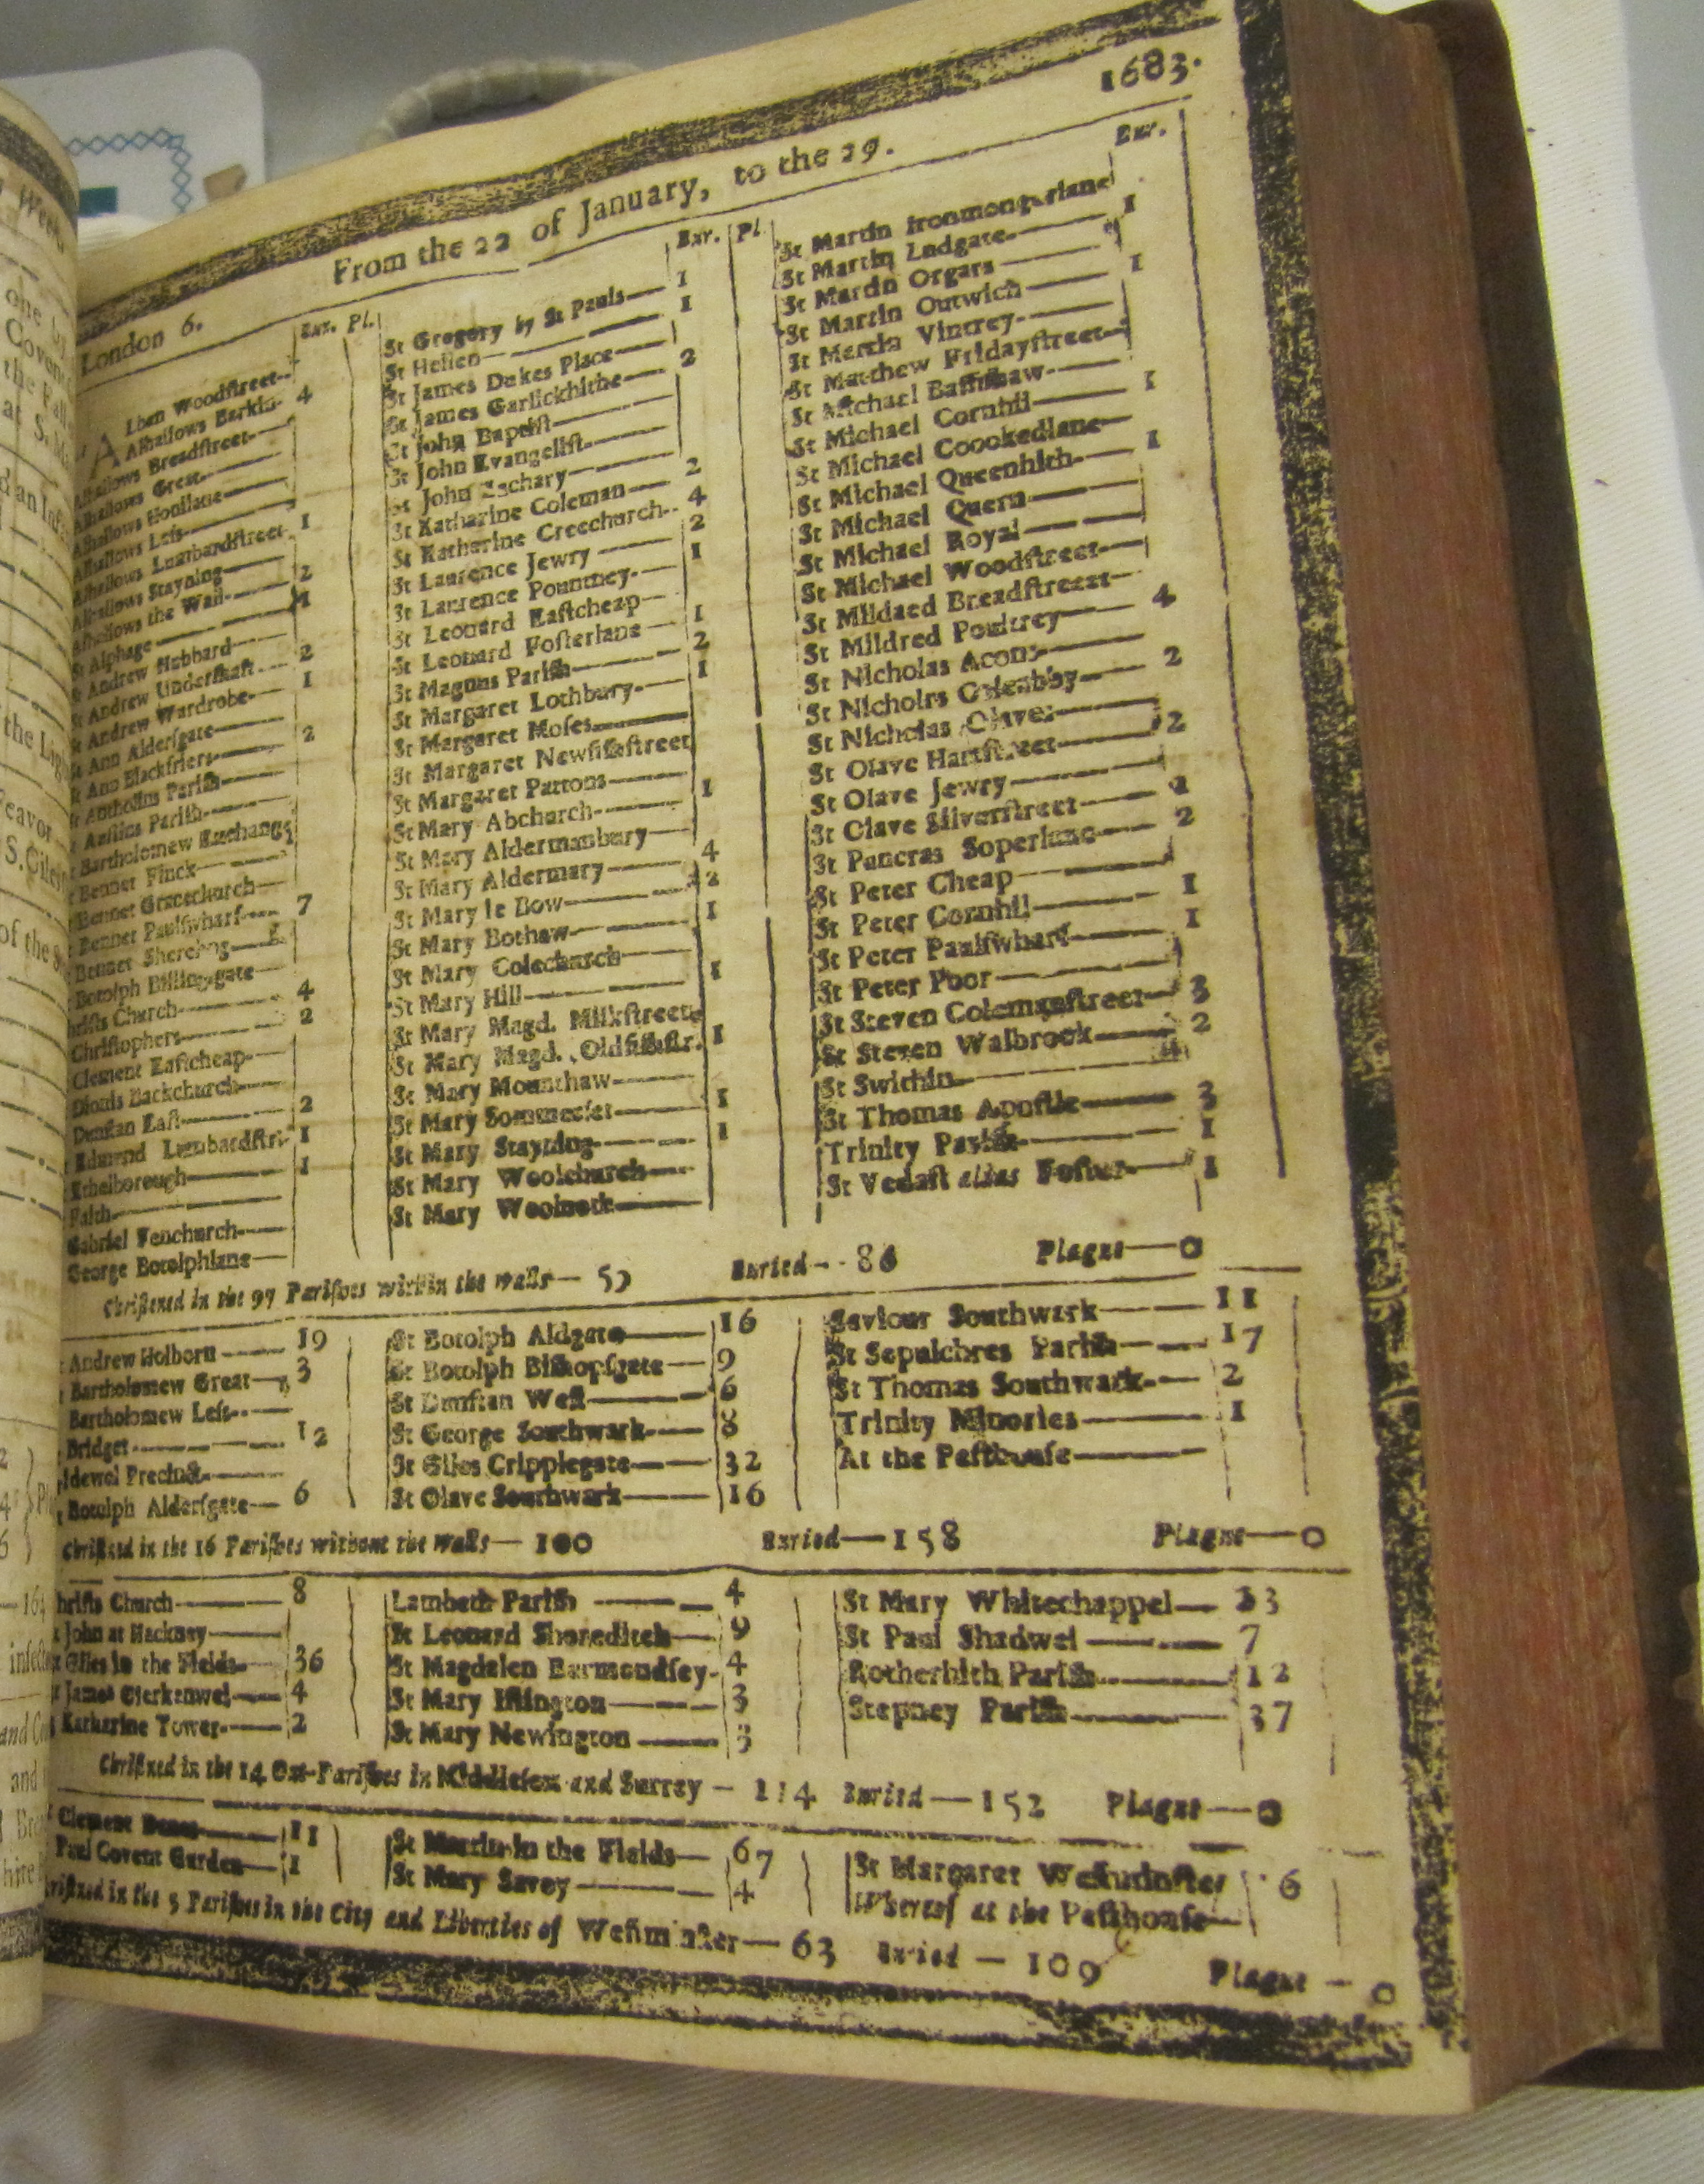 1683.
London 6. From the 22 of January, to the 29.
Bur. Pl.
Alban Woodſtreet
Alhallows Barkin 4
Alhallows Breadſtreet
Alhallows Great
Alhallows Honilane
Alhallows Leſs
Alhallows Lumbardſtreet 1
Alhallows Stayning
Alhallows the Wall 2
St Alphage 1
St Andrew Hubbard
St Andrew Underſhaft 2
St Andrew Wardrobe 1
St Ann Alderſgate
St Ann Blackfriers 2
St Antholins Pariſh
St Auſtins Pariſh
Bartholomew Exchange
Bennet Finck
Bennet Gracechurch
Bennet Paulſwharf 7
Bennet Sherehog
Botolph Billingſgate
hriſts Church 4
Chriſtophers 2
Clement Eaſtcheap
Dionis Backchurch
Dunſtan Eaſt 2
Edmund Lumbardſtr. 1
Ethelborough 1
Faith
Gabriel Fenchurch
George Botolphlane
Bur. Pl.
St Gregory by St Pauls 1
St Hellen 1
St James Dukes Place
St James Garlickhithe 2
St John Baptiſt
St John Evangeliſt
St John Zachary
St Katharine Coleman 2
St Katharine Creechurch 4
St Laurence Jewry 2
St Laurence Pountney 1
St Leonard Eaſtcheap
St Leonard Foſterlane 1
St Magnus Pariſh 2
St Margaret Lothbury 1
St Margaret Moſes
St Margaret Newfiſhſtreet
St Margaret Pattons
St Mary Abchurch 1
St Mary Aldermanbury
St Mary Aldermary 4
St Mary le Bow 2
St Mary Bothaw 1
St Mary Colechurch
St Mary Hill 1
St Mary Magd. Milkſtreet
St Mary Magd. Oldfiſhſtr. 1
St Mary Mounthaw
St Mary Sommerſet 1
St Mary Stayning 1
St Mary Woolchurch
St Mary Woolnoth
Bur.
St Martin Ironmongerlane
St Martin Ludgate 1
St Martin Orgars
St Martin Outwich 1
St Martin Vintrey
St Matthew Fridayſtreet
St Michael Baſſiſhaw
St Michael Cornhil 1
St Michael Coockedlane
St Michael Queenhith 1
St Michael Quern
St Michael Royal
St Michael Woodſtreet
St Mildaed Breadſtreet
St Mildred Poultrey 4
St Nicholas Acons
St Nicholas Coleabby 2
St Nicholas Olaves
St Olave Hartſtreet 2
St Olave Jewry
St Olave Silverſtreet 2
St Pancras Soperlane 2
St Peter Cheap
St Peter Cornhil 1
St Peter Paulſwharf 1
St Peter Poor
St Steven Colemanſtreet 3
St Steven Walbrook 2
St Swithin
St Thomas Apoſtle 3
Trinity Pariſh 1
St Vedaſt alias Foſter 1
Chriſtned in the 97 Pariſhes within the walls Buried 86 Plague 0
Andrew Holborn 19
Bartholomew Great 3
Bartholomew Leſs
Bridget 12
Bridewel Precinct
Botolph Alderſgate 6
St Botolph Aldgate 16
St Botolph Biſhopſgate 9
St Dunſtan Weſt 6
St George Southwark 8
St Giles Cripplegate 32
St Olave Southwark 16
Saviour Southwark 11
St Sepulchres Pariſh 17
St Thomas Southwark 2
Trinity Minories 1
At the Peſthouſe
Chriſtned in the 16 Pariſhes without the Walls 100 Buried 158 Plague 0
hriſts Church 8
John at Hackney
Giles in the Fields 36
James Clerkenwel 4
Katharine Tower 2
Lambeth Pariſh 4
St Leonard Shoreditch 9
St Magdalen Barmondſey 4
St Mary Iſlington 3
St Mary Newington 3
St Mary Whitechappel 23
St Paul Shadwel 7
Rotherhith Pariſh 12
Stepney Pariſh 37
Chriſtned in the 14 Out-Pariſhes in Middleſex and Surrey 114 Buried 152 Plague 0
Clement Danes 11
Paul Covent Garden 1
St Martin in the Fields 67
St Mary Savoy 4
St Margaret Weſtminſter 6
Whereof at the Peſthouſe
hriſtned in the 5 Pariſhes in the City and Liberties of Weſtminſter 63 Buried 109 Plague 0